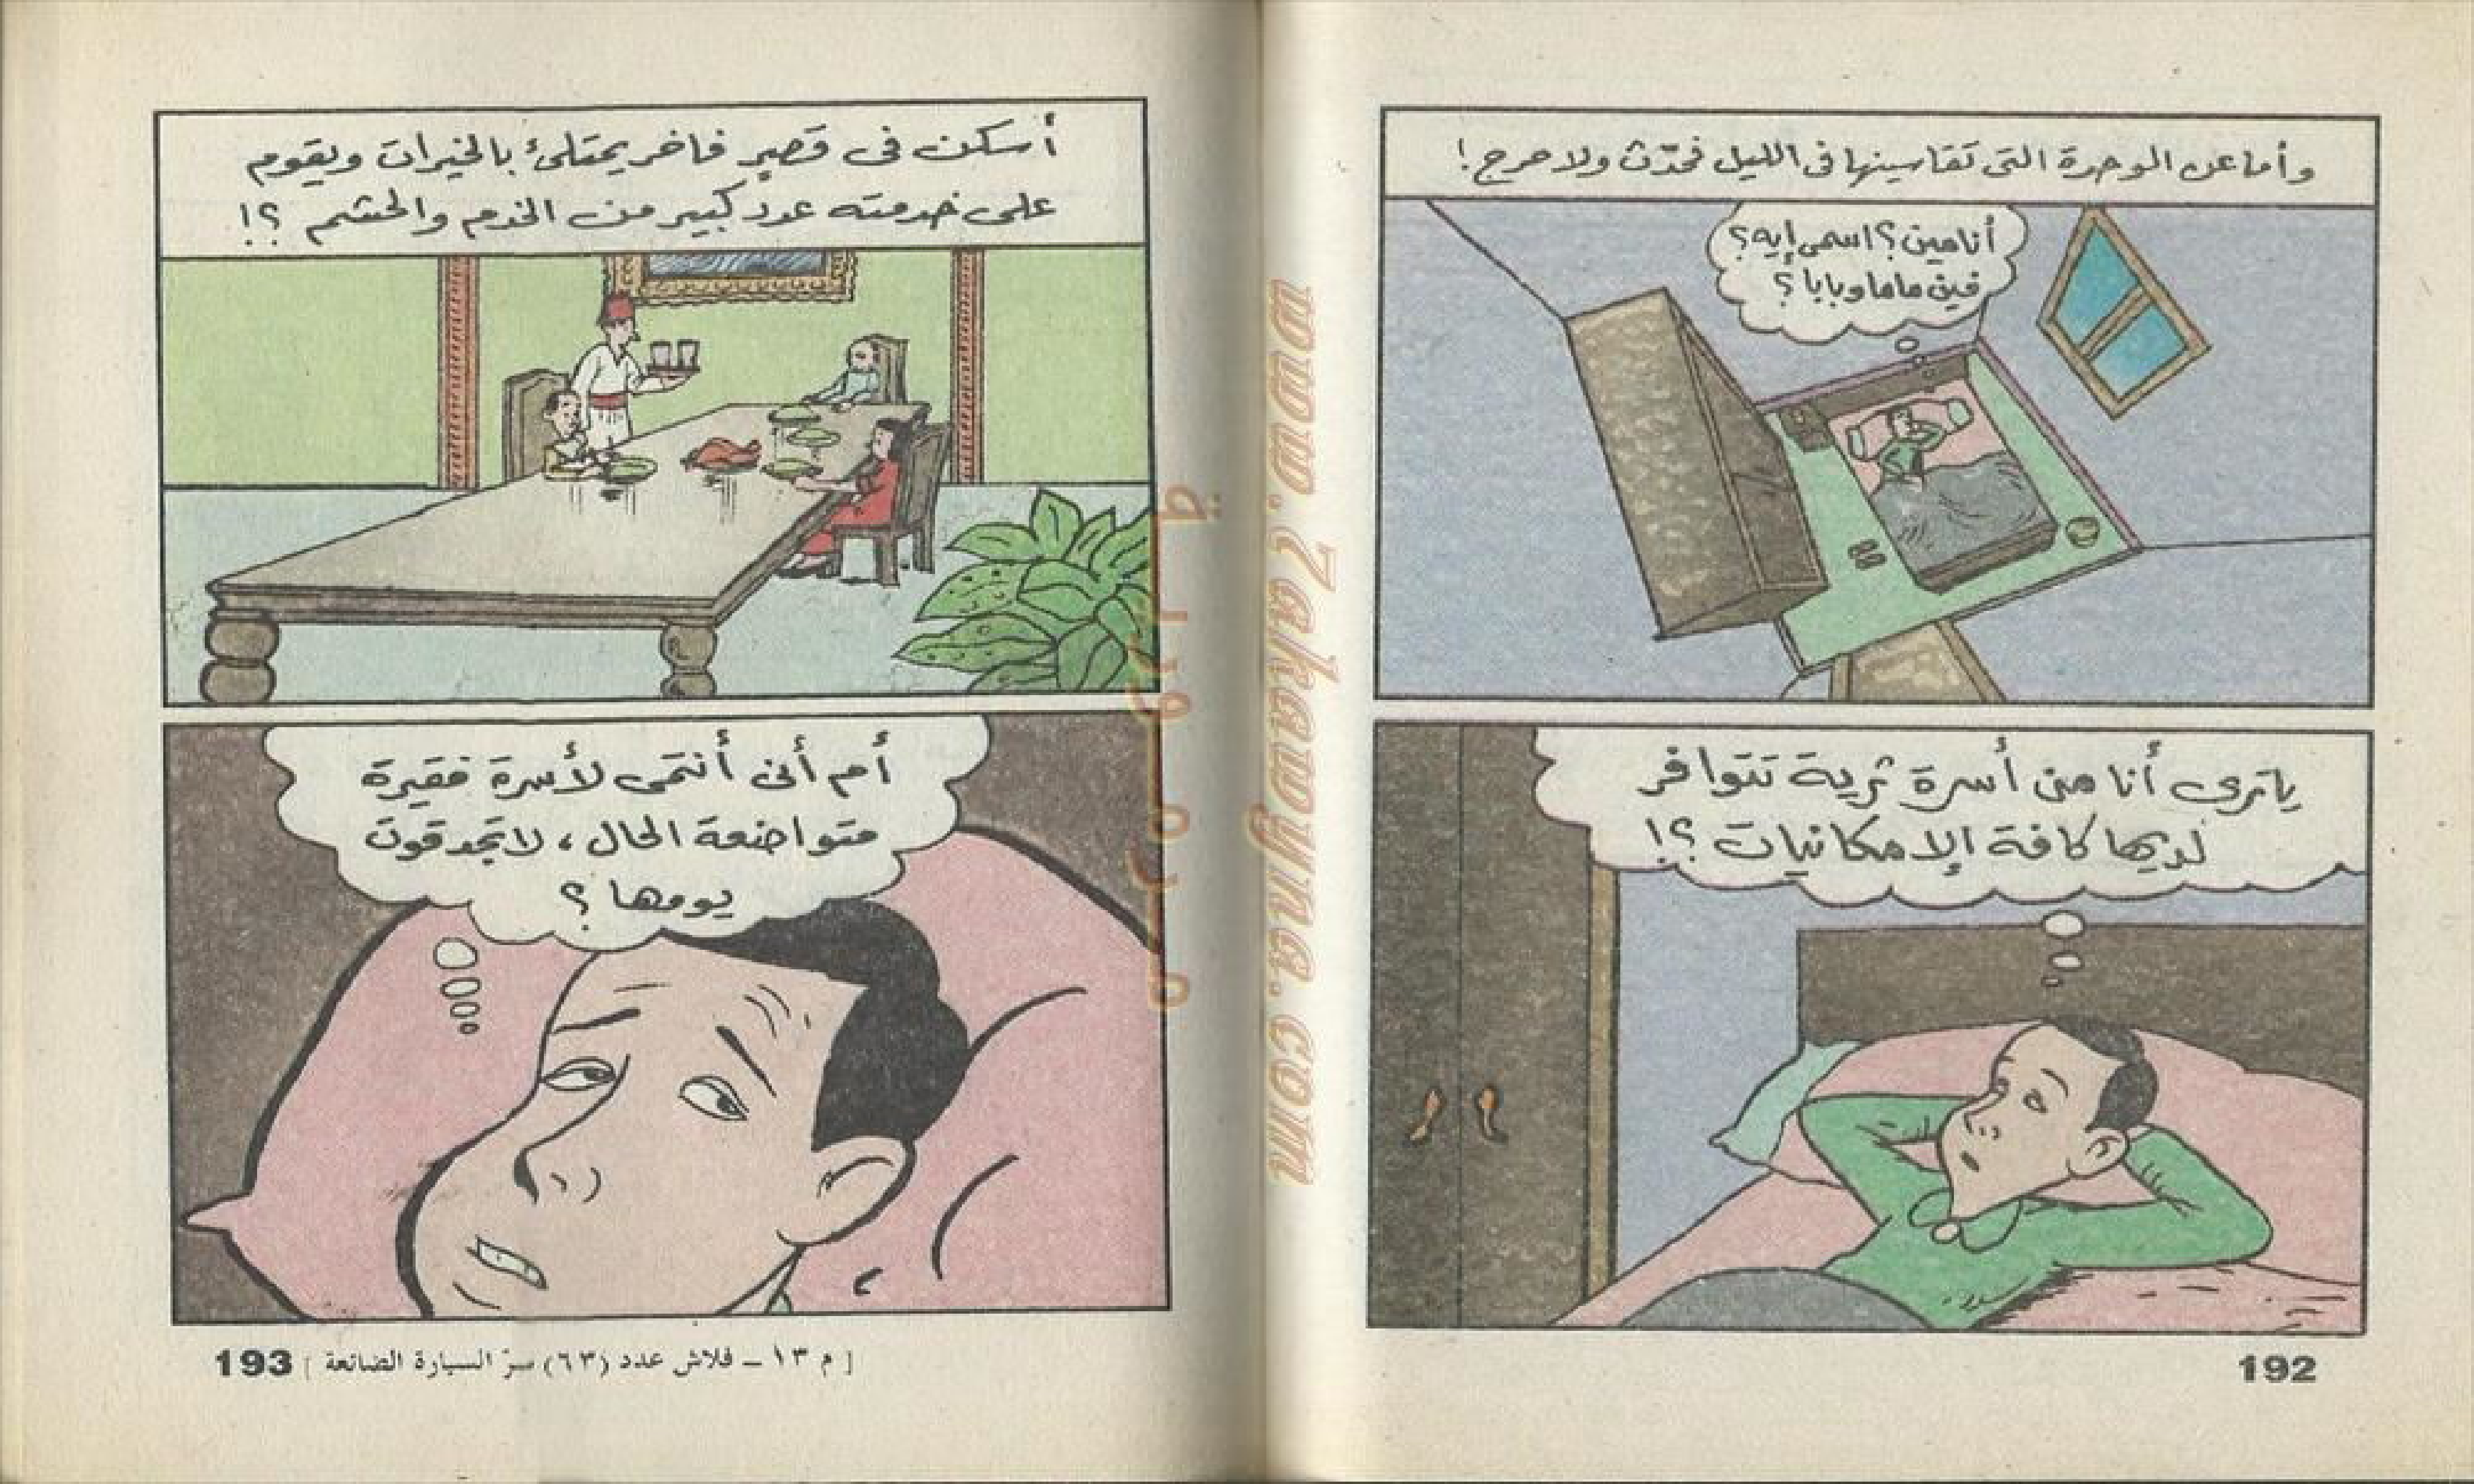 وأما عن الوحدة التى تقاسينها فى الليل فحدّث ولا حرج!
أنا مين؟ اسمى إيه؟
فين ماما وبابا؟
ياترى أنا من أسرة ثرية تتوافر
لديها كافة الإمكانيات؟!
192
أسكن فى قصرٍ فاخر يمتلئ بالخيرات ويقوم
على خدمته عدد كبير من الخدم والحشم؟!
أم أنى أنتمى لأسرة فقيرة
متواضعة الحال، لا تجد قوت
يومها؟
[ م ١٣ – فلاش عدد (٦٣) سرّ السيارة الضائعة ] 193
www.Zakawyna.com